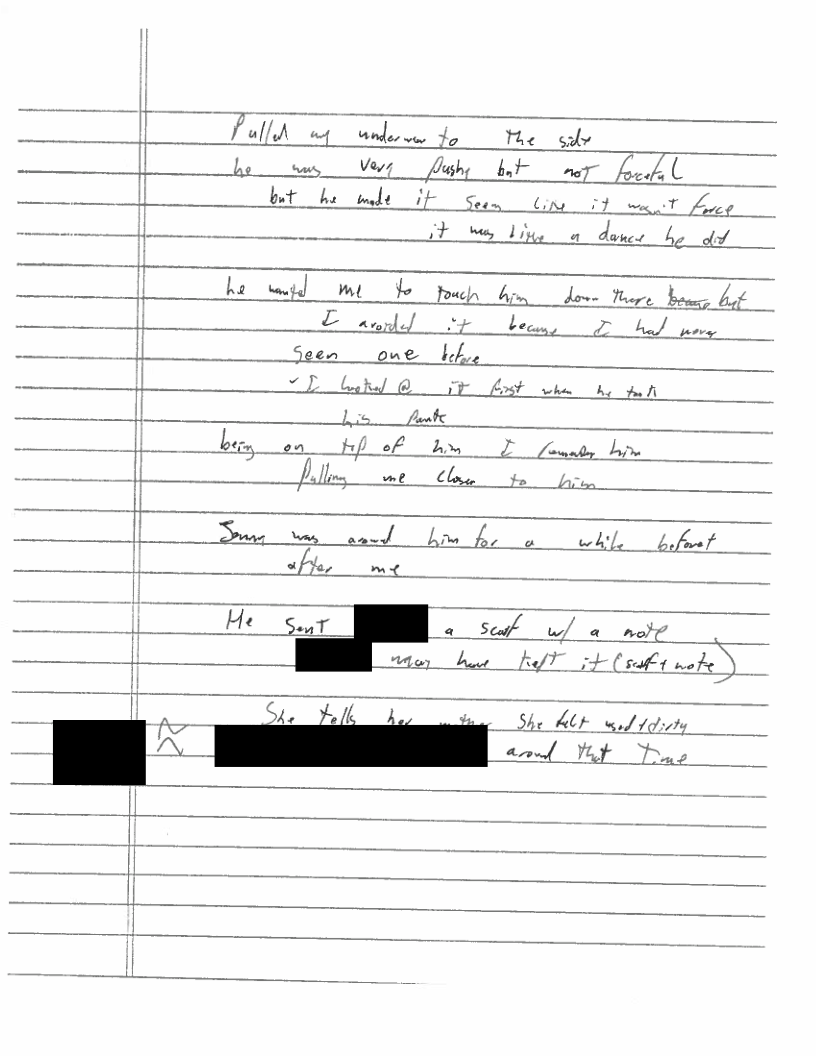 Pulled my underwear to the side
he was very pushy but not forceful
but he made it seem like it wasn't force
it was like a dance he did
he wanted me to touch him down there but
I avoided it because I had never
seen one before
✓ I looked @ it first when he took
his pants
being on top of him I remember him
pulling me closer to him
was around him for a while before +
after me
He sent a scarf w/ a note
may have kept it (scarf + note)
She tells her mother she felt used + dirty
around that time